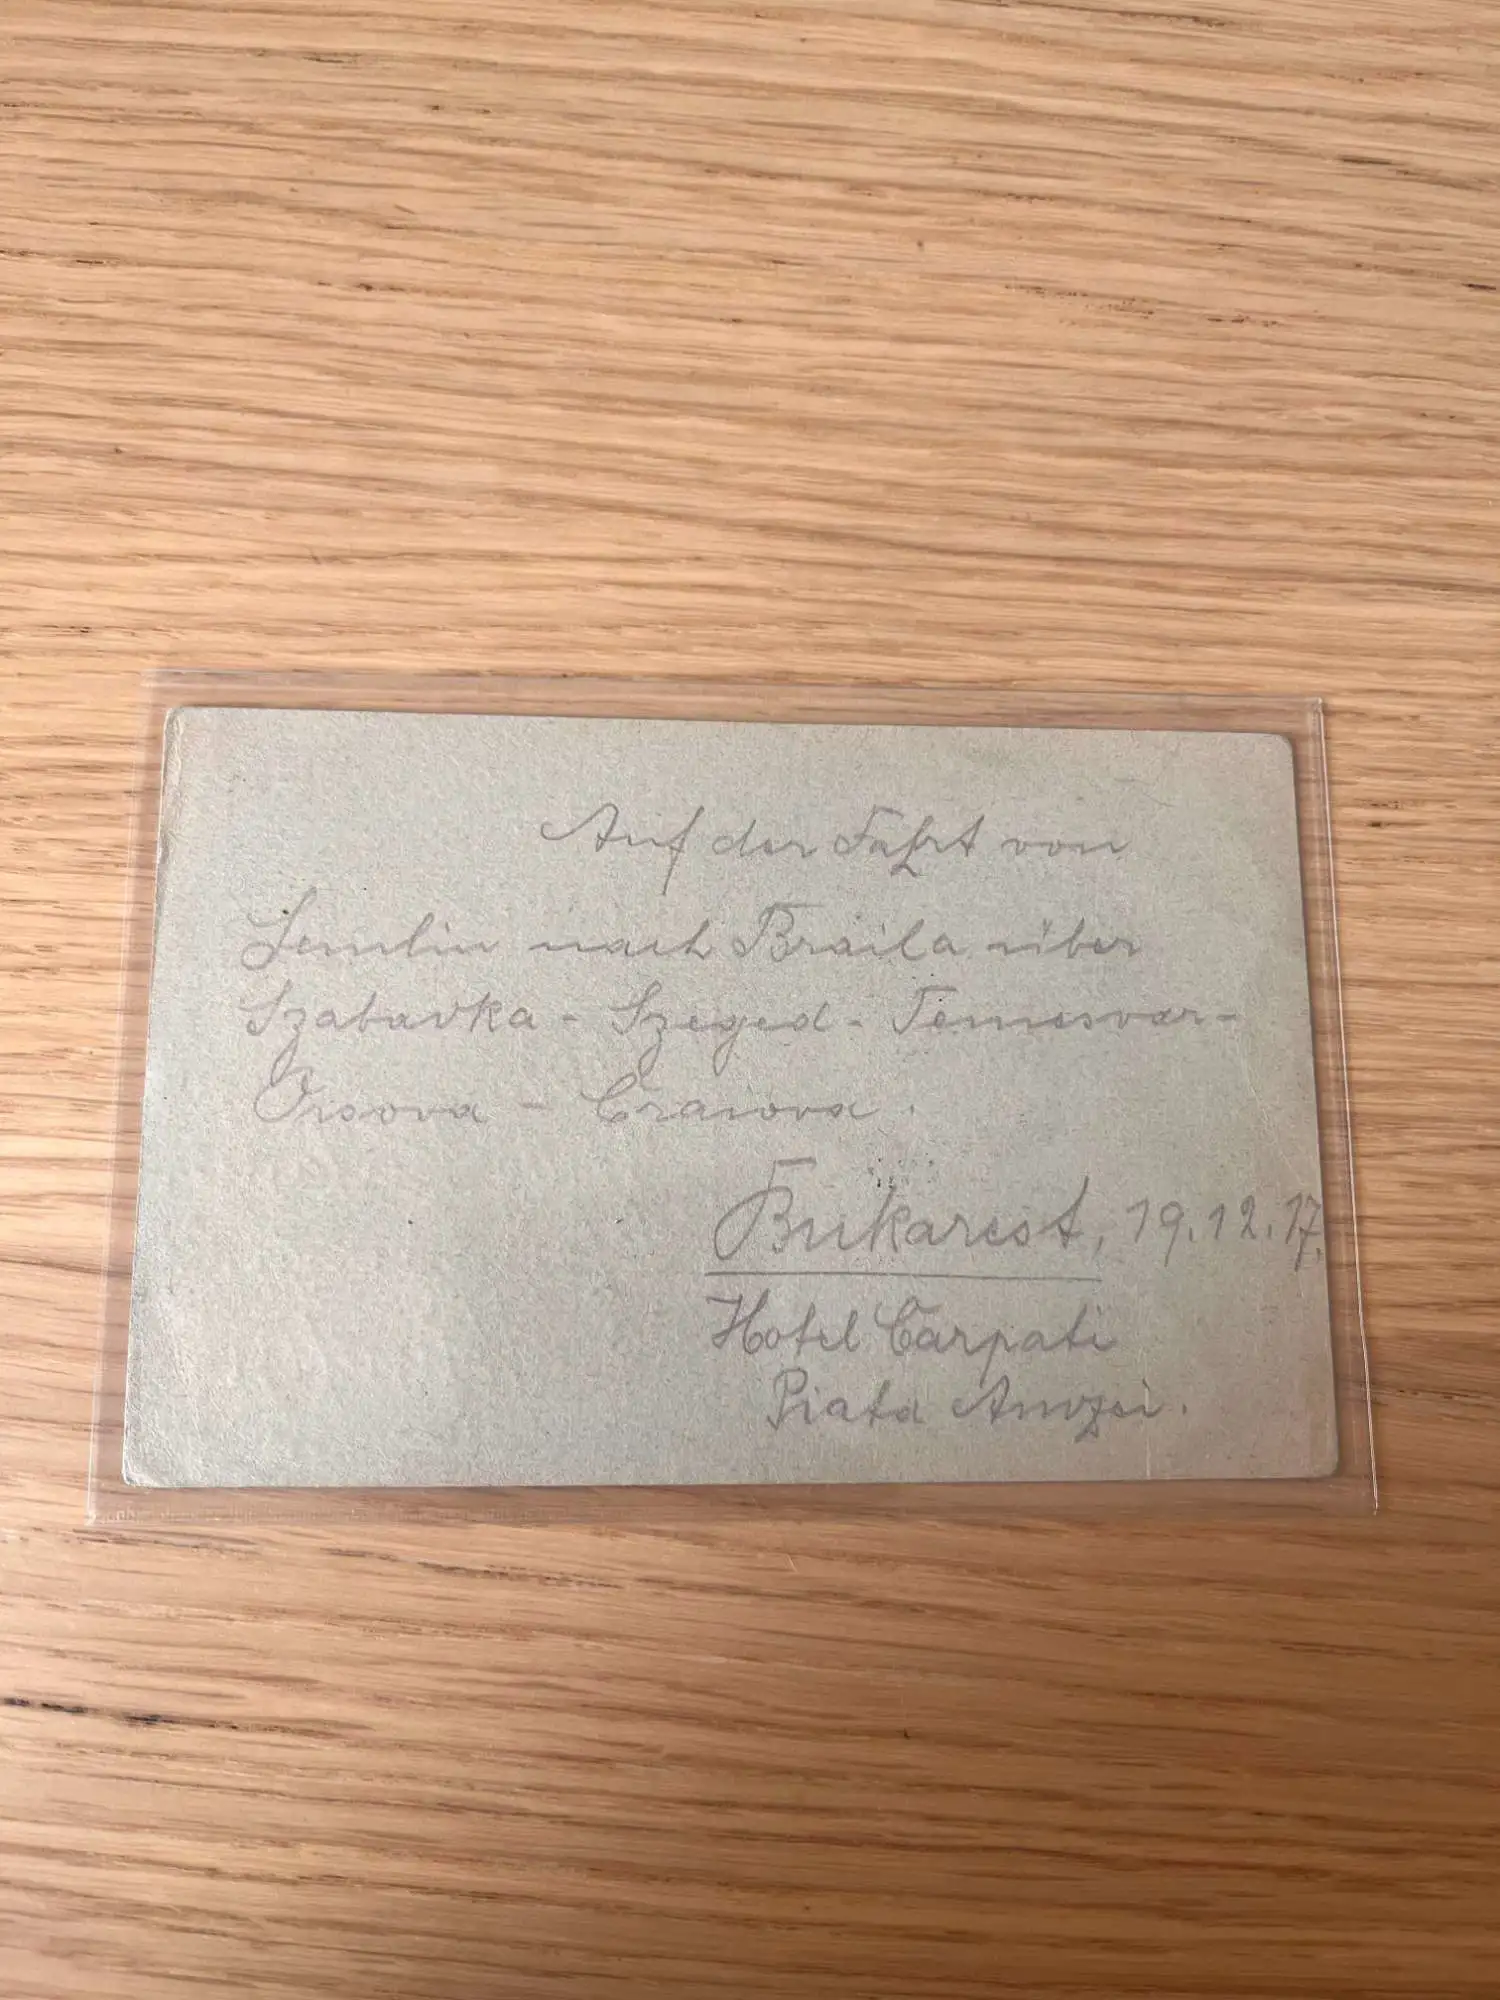 Auf der Fahrt von
Semlin nach Braila über
Szabavka - Szeged - Temesvar -
Orsova - Craiova.
Bukarest, 19.12.17.
Hotel Carpati
Piata Amzei.